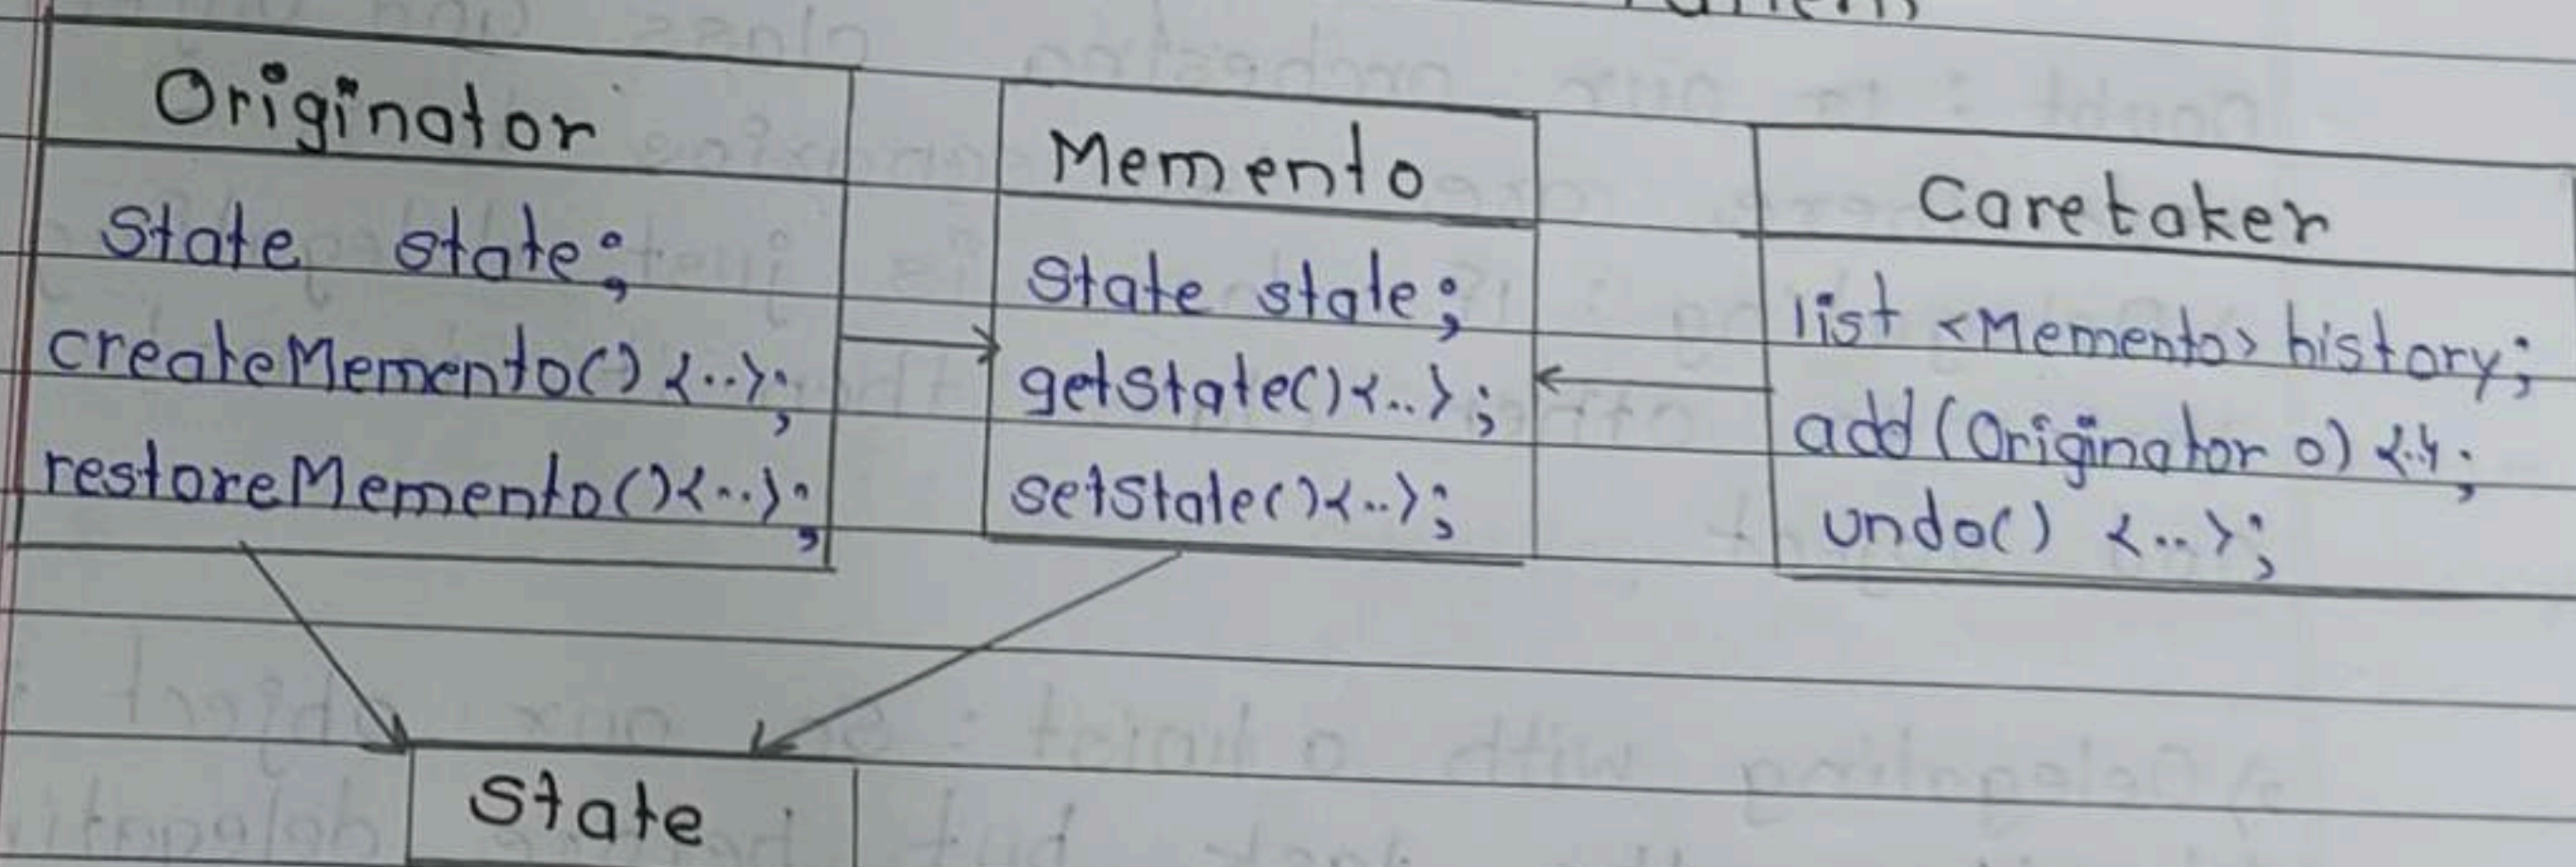 Originator
State state;
createMemento() {..};
restoreMemento() {..};
Memento
State state;
getState() {..};
setState() {..};
Caretaker
list <Memento> history;
add (Originator o) {..};
undo() {..};
State